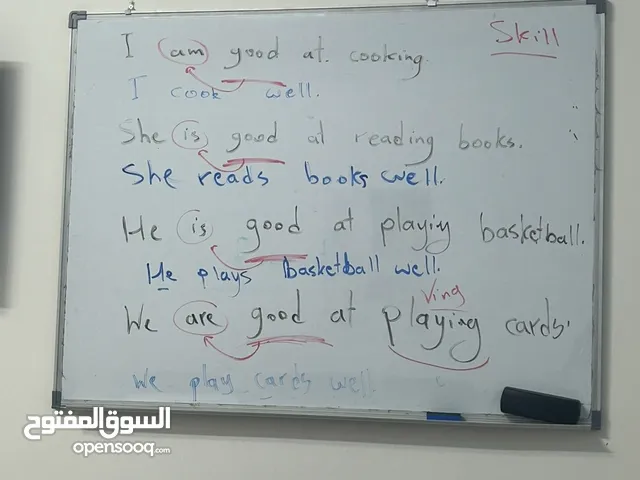 Skill
I am good at cooking.
I cook well.
She is good at reading books.
She reads books well.
He is good at playing basketball.
He plays basketball well.
Ving
We are good at playing cards.
We play cards well
السوق المفتوح
opensooq.com